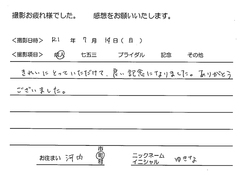 撮影お疲れ様でした。 感想をお願いいたします。
撮影日時 R1 年 7 月 14 日 (日)
撮影項目 成人 七五三 ブライダル 記念 その他
きれいにとっていただけて、良い記念になりました。ありがとう
ございました。
お住まい 河内 市 町 村 ニックネーム イニシャル ゆきすよ